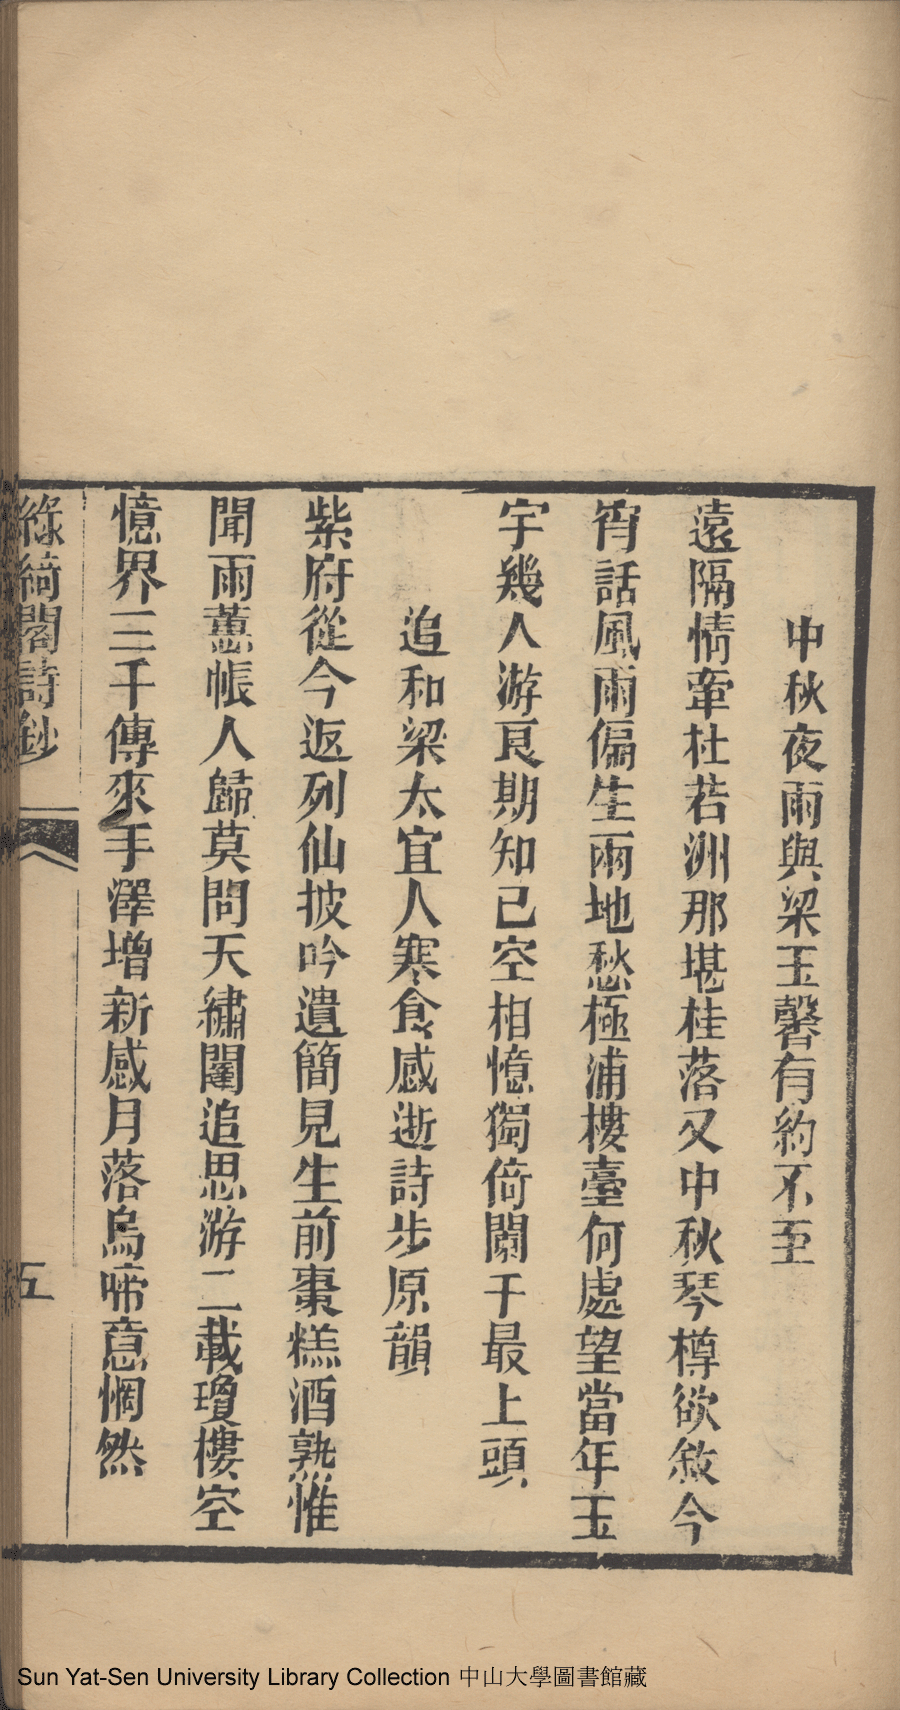 中秋夜雨與梁玉馨有約不至
遠隔情牽杜若洲那堪桂落又中秋琴樽欲敘今
宵話風雨偏生兩地愁極浦樓臺何處望當年玉
宇幾人游良期知己空相憶獨倚闌干最上頭
追和梁太宜人寒食感逝詩步原韻
紫府從今返列仙披吟遺簡見生前棗糕酒熟惟
聞雨蕙帳人歸莫問天繡闥追思游二載瓊樓空
憶界三千傳來手澤增新感月落烏啼意惘然
綠綺閣詩鈔
五
Sun Yat-Sen University Library Collection 中山大學圖書館藏